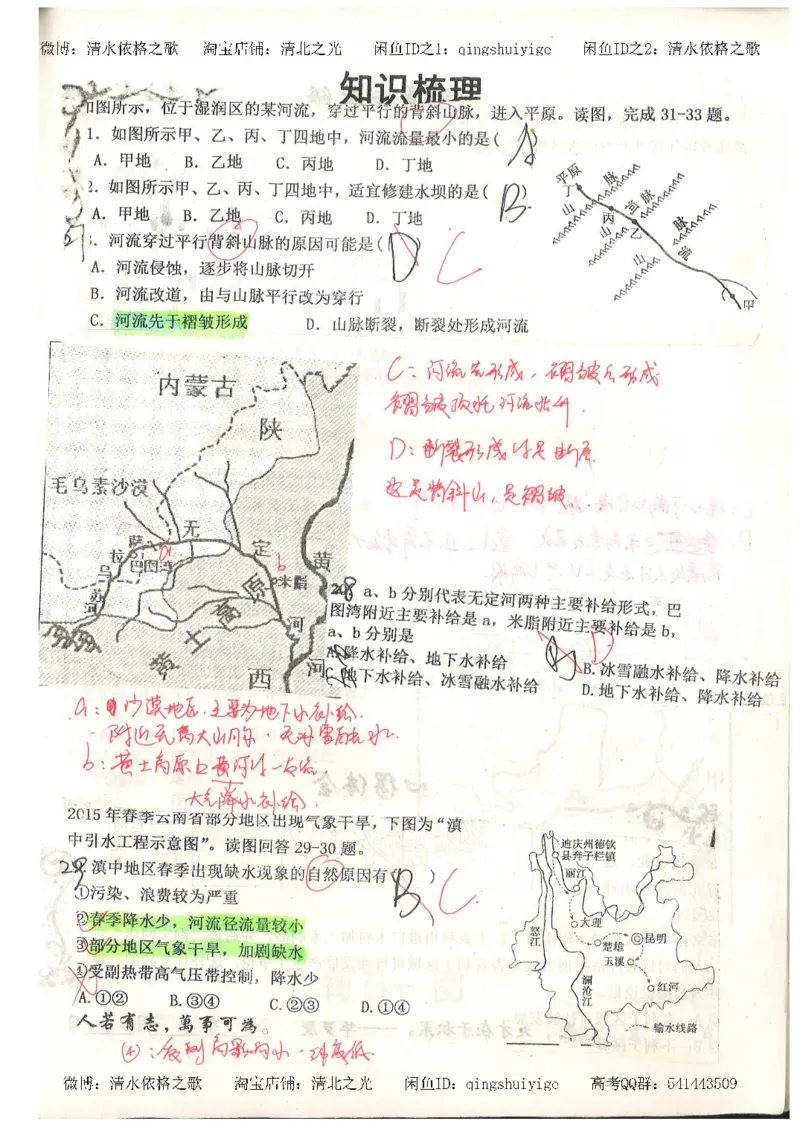 微博：清水依格之歌 淘宝店铺：清北之光 闲鱼ID之1：qingshuiyige 闲鱼ID之2：清水依格之歌
知识梳理
如图所示，位于湿润区的某河流，穿过平行的背斜山脉，进入平原。读图，完成31-33题。
1．如图所示甲、乙、丙、丁四地中，河流流量最小的是( A
A．甲地 B．乙地 C．丙地 D．丁地
2．如图所示甲、乙、丙、丁四地中，适宜修建水坝的是( B)
A．甲地 B．乙地 C．丙地 D．丁地
3．河流穿过平行背斜山脉的原因可能是( D ) C
A．河流侵蚀，逐步将山脉切开
B．河流改道，由与山脉平行改为穿行
C．河流先于褶皱形成 D．山脉断裂，断裂处形成河流
平原
丁
山 脉
丙
当 脉
山 乙
脉
山 流
甲
C：河流先形成，褶皱后形成
D：断裂形成的是断层
这是背斜山，是褶皱
内蒙古
陕
毛乌素沙漠
无
定
河
萨
拉
乌
苏
河
巴图湾
a
b
米脂
黄
河
黄土高原
西
28 a、b分别代表无定河两种主要补给形式，巴
图湾附近主要补给是a，米脂附近主要补给是b，
a、b分别是 B D
A.降水补给、地下水补给 B.冰雪融水补给、降水补给
C.地下水补给、冰雪融水补给 D.地下水补给、降水补给
a：沙漠地区．主要为地下水补给．
附近无高大山脉．无冰雪融水．
b：黄土高原上黄河的一支流
大气降水补给．
2015年春季云南省部分地区出现气象干旱，下图为“滇
中引水工程示意图”。读图回答29-30题。
29 滇中地区春季出现缺水现象的自然原因有( B ) C
①污染、浪费较为严重
②春季降水少，河流径流量较小
③部分地区气象干旱，加剧缺水
④受副热带高气压带控制，降水少
A.①② B.③④ C.②③ D.①④
人若有志，萬事可為。
④：受副高影响小．纬度低
迪庆州德钦
县奔子栏镇
丽江
大理
怒江
楚雄
昆明
玉溪
澜沧江
红河
输水线路
微博：清水依格之歌 淘宝店铺：清北之光 闲鱼ID：qingshuiyige 高考QQ群：541443509